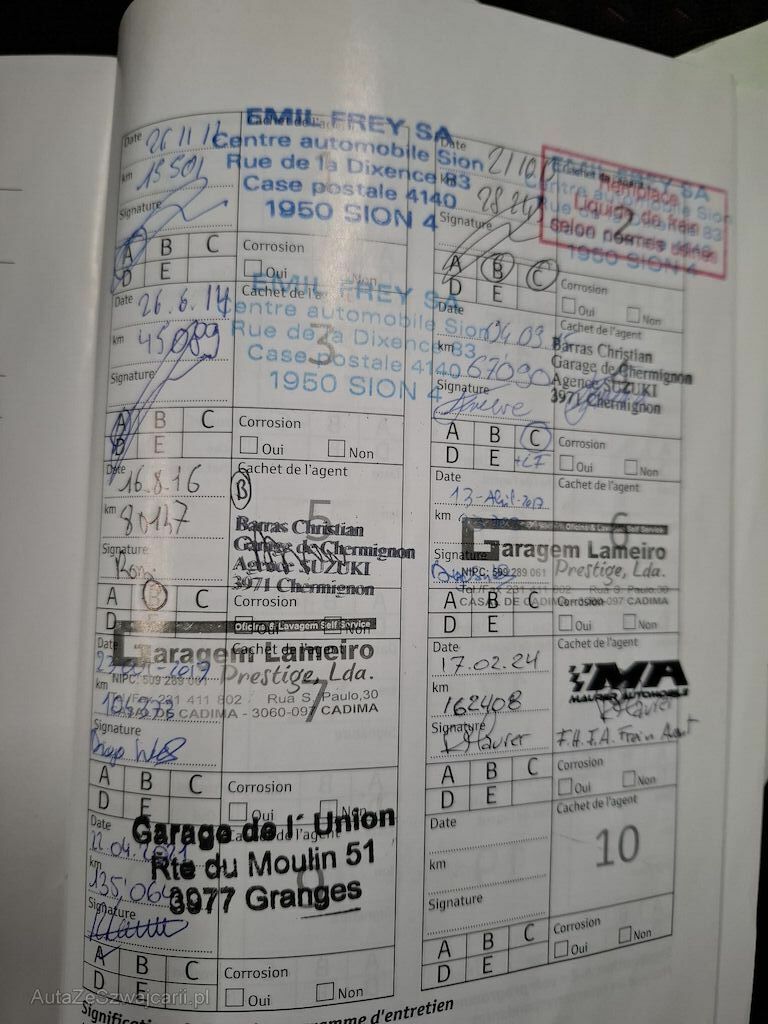 Date 26 11 12
km 15 501
Signature
EMIL FREY SA
Centre automobile Sion
Rue de la Dixence 83
Case postale 4140
1950 SION 4
A B C
D E
Corrosion
Oui Non
Date
km
Signature
Remplacé
Liquide de frein
selon normes
EMIL FREY SA
Centre automobile Sion
1950 SION 4
2
A B C
D E
Corrosion
Oui Non
Date 26.6.14
km 45089
Signature
Cachet de l'a
EMIL FREY SA
Centre automobile Sion
Rue de la Dixence 83
Case postale 4140
1950 SION 4
3
A B C
D E
Corrosion
Oui Non
Date 04 09
km 67090
Signature
Cachet de l'agent
Barras Christian
Garage de Chermignon
Agence SUZUKI
3971 Chermignon
A B C
D E +LF
Corrosion
Oui Non
Date 16.8.16
km 80147
Signature
Cachet de l'agent
B
5
Barras Christian
Garage de Chermignon
Agence SUZUKI
3971 Chermignon
A B C
D
Corrosion
Oui Non
Date 13-Abril-2017
km
Signature
Cachet de l'agent
6
Oficina & Lavagem Self Service
Garagem Lameiro
NIPC: 509 289 061 Prestige, Lda.
Tel./Fax 231 411 802 Rua S. Paulo,30
CASAL DE CADIMA - 3060-097 CADIMA
A B C
D E
Corrosion
Oui Non
Date
km
Signature
Cachet de l'agent
7
Oficina & Lavagem Self Service
Garagem Lameiro
NIPC: 509 289 061 Prestige, Lda.
Tel./Fax 231 411 802 Rua S. Paulo,30
CASAL DE CADIMA - 3060-097 CADIMA
A B C
D E
Corrosion
Oui Non
Date 17.02.24
km 162408
Signature
Cachet de l'agent
MA
MAURER AUTOMOBILE
A B C
D E
Corrosion
Oui Non
Date 22.04.2021
km 135,064
Signature
Cachet de l'agent
9
Garage de l' Union
Rte du Moulin 51
3977 Granges
A B C
D E
Corrosion
Oui Non
Date
km
Signature
Cachet de l'agent
10
A B C
D E
Corrosion
Oui Non
AutaZeSzwajcarii.pl